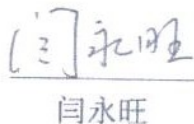 闫永旺
闫永旺